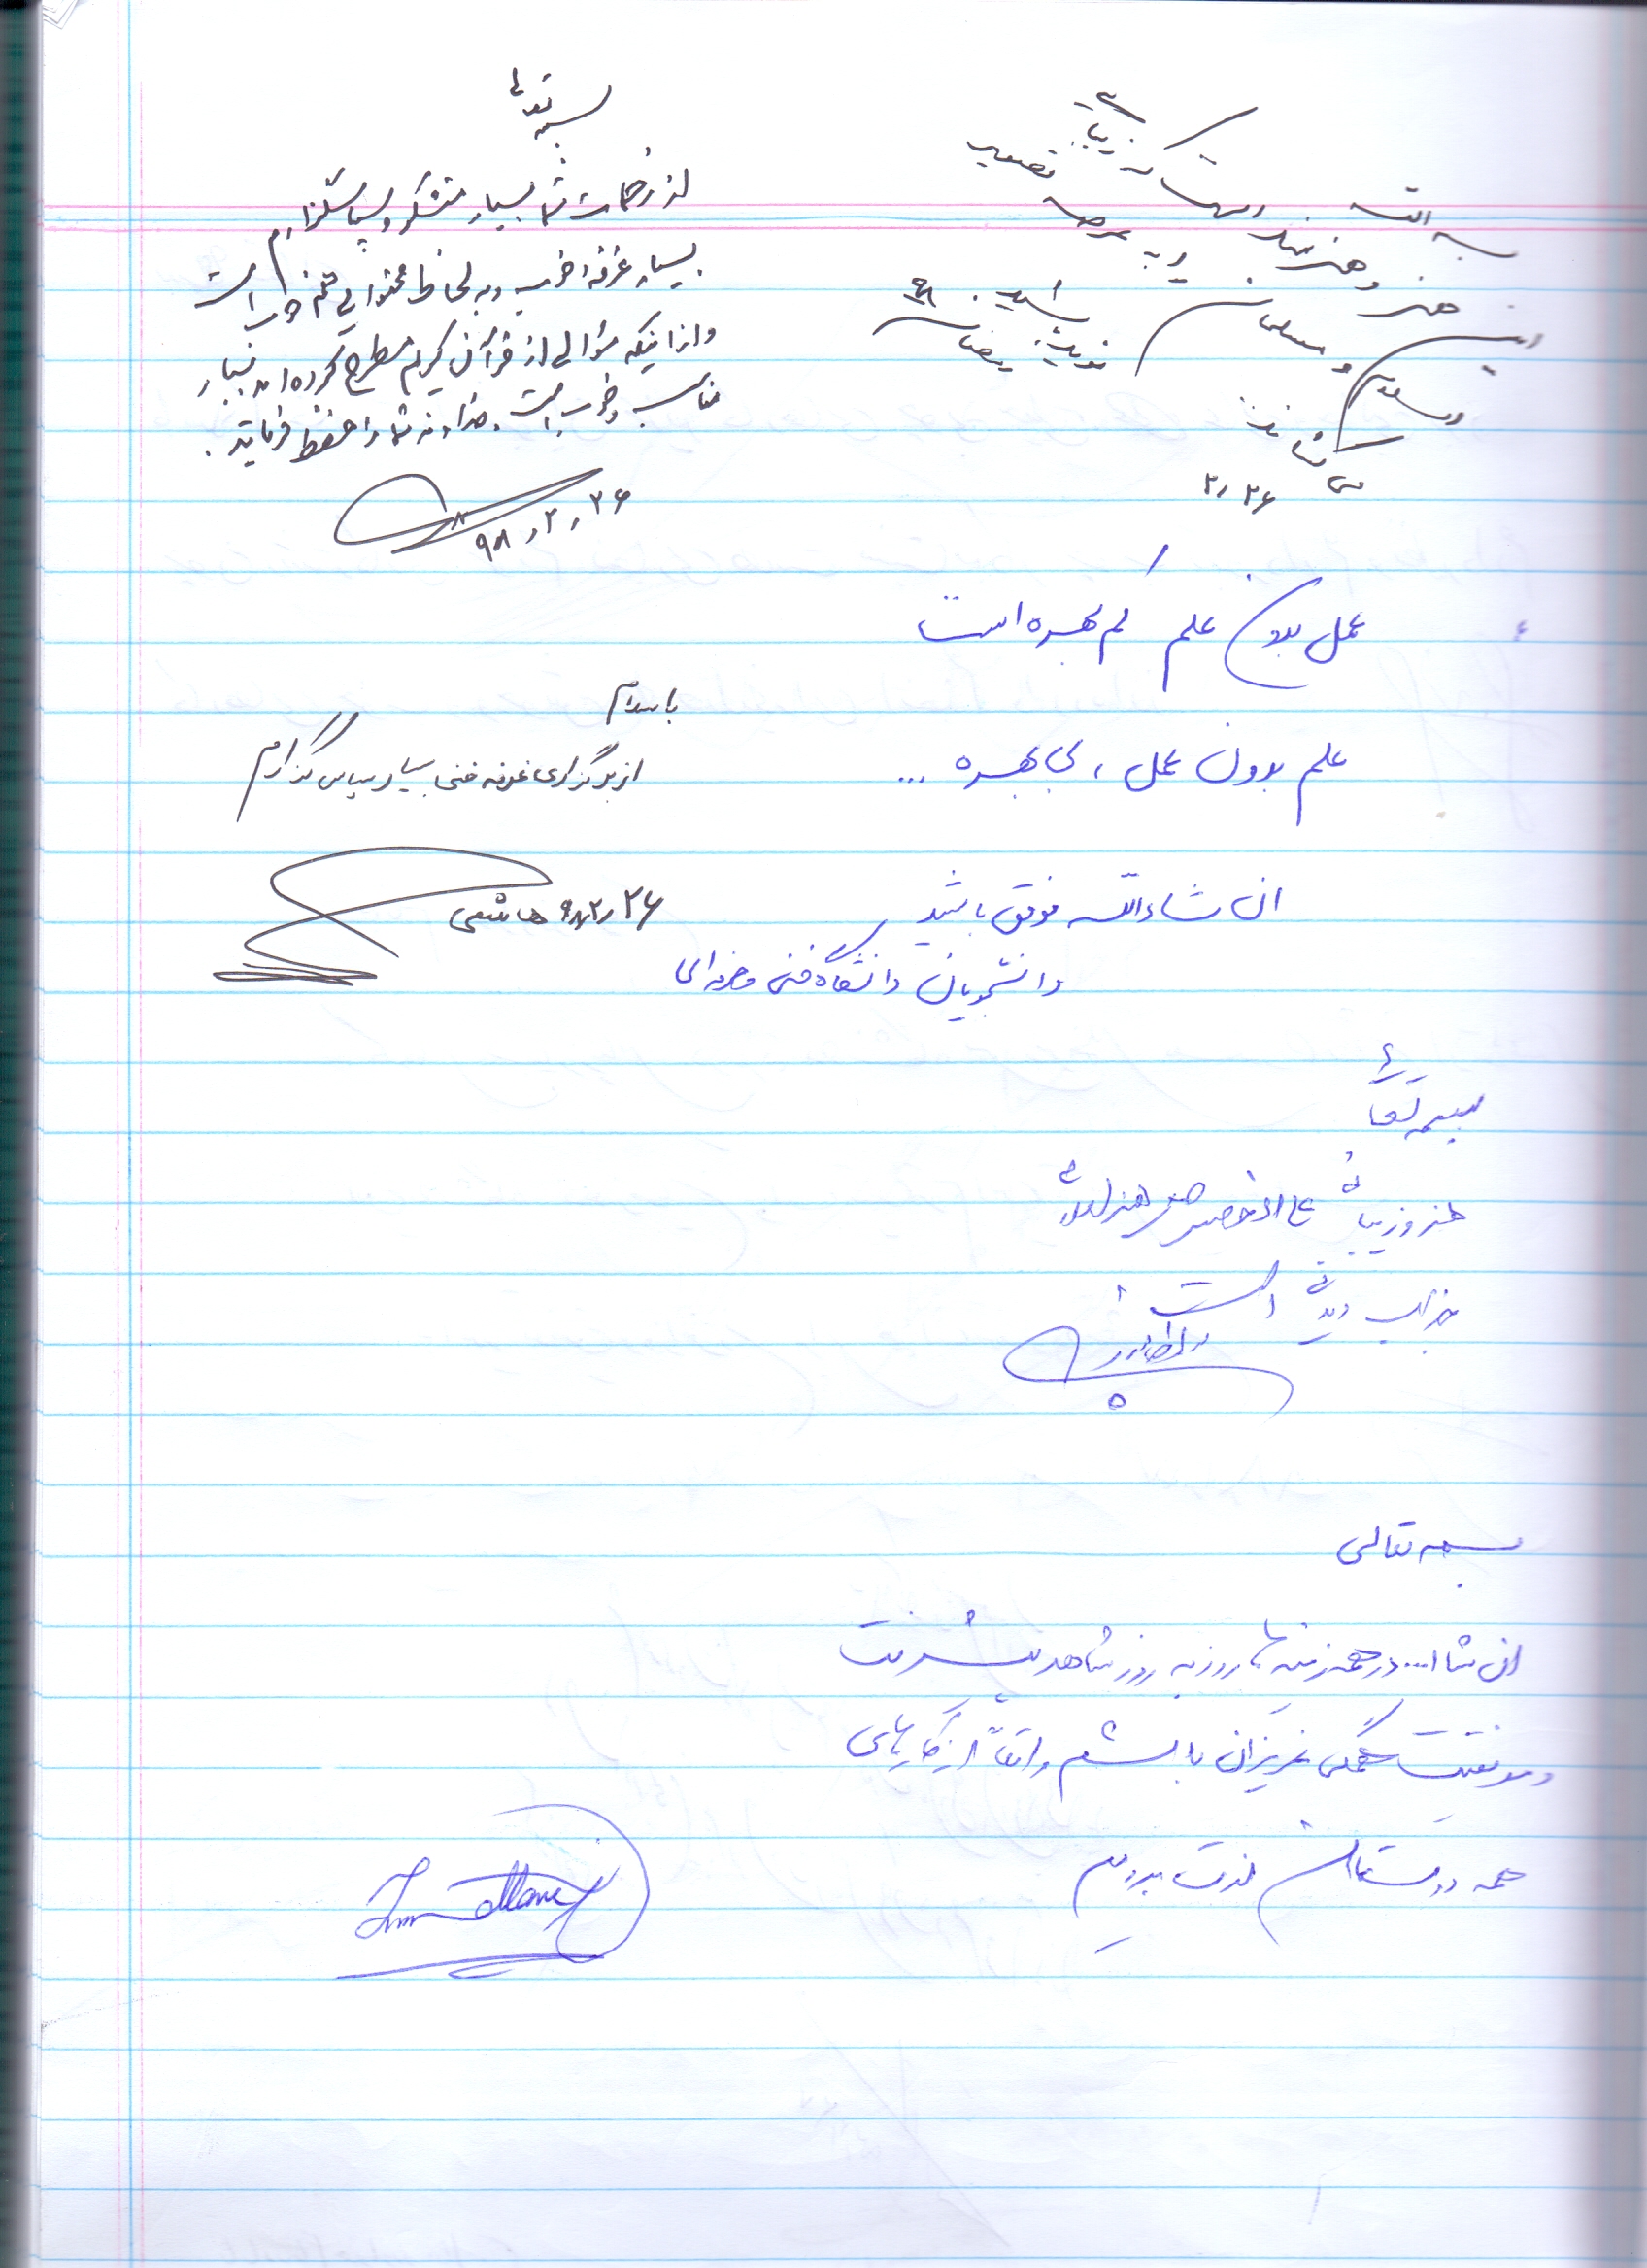 بسمه تعالی
از زحمات شما بسیار متشکر و سپاسگزارم
بسیار غرفه خوب و به لحاظ محتوایی هم خوب است
و از اینکه سؤالی از قرآن کریم مطرح کرده اند بسیار
مناسب و خوب است. خداوند شما را حفظ فرماید.
۹۸،۲،۲۶
بسم الله
هنر و هنرمند
۲،۲۶
عمل بدون علم کم بهره است
علم بدون عمل، بی بهره ...
ان شاءالله موفق باشید
دانشجویان دانشگاه فنی و حرفه ای
با سلام
از برگزاری غرفه فنی بسیار سپاس گزارم
۹۸،۲،۲۶ هاشمی
بسمه تعالی
هنر و زیبائی علی الخصوص هنر
جذاب دیدنی است.
بسمه تعالی
ان شا ا... در همه زمینه ها روز به روز شاهد پیشرفت
و موفقیت همگی عزیزان باشیم واقعاً از کارهای
همه دوستان لذت بردیم